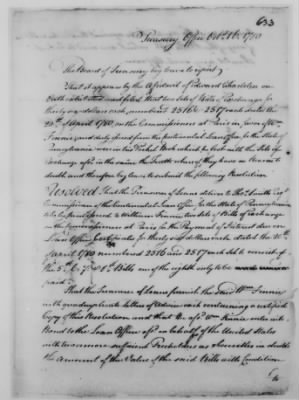 633
Treasury Office Octr 16. 1780
The Board of Treasury beg leave to report
That it appears by the Affidavit of Edward
on Oath that two sets of Bills of Exchange for
thirty six dollars each, numbered 2516 & 2517 each dated the
20th of April 1780 on the Commissioners at Paris in favor of Wm
and duly issued from the Continental Loan Office for the State of
Pennsylvania were in the Pocket Book which he lost with the Sets of
Exchange afsd in the same the Truth whereof they have no reason to
doubt and therefore beg leave to submit the following Resolution
Resolved That the Treasurer of Loans deliver to Thos Smith Esqr
Commissioner of the Continental Loan Office for the State of Pennsylvania
to be by him issued to William two sets of Bills of Exchange
on the Commissioners at Paris for the Payment of Interest due on
Loan Office Certificates for thirty six dollars each dated the 20th
April 1780 numbered 2516 and 2517 each Set to consist of
the 5th 6th 7th & 8th Bills one of the eight only to be
paid
That the Treasurer of Loans furnish the said Wm
with quadruplicate letters of Advice each containing a certified
Copy of this Resolution and that the afsd Wm enter into
Bond to the Loan Officer afsd on behalf of the United States
with two more sufficient Freeholders as Securities in double
the Amount of the Value of the said Bills with Condition